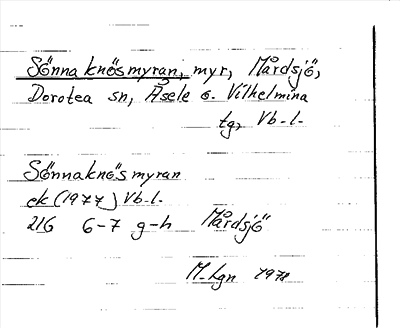 Sönnaknösmyran, myr, Mårdsjö,
Dorotea sn, Åsele o. Vilhelmina
tg, Vb-l.
Sönnaknösmyran
ek (1977) Vb-l.
21G 6-7 g-h Mårdsjö
M. Lgn 1978